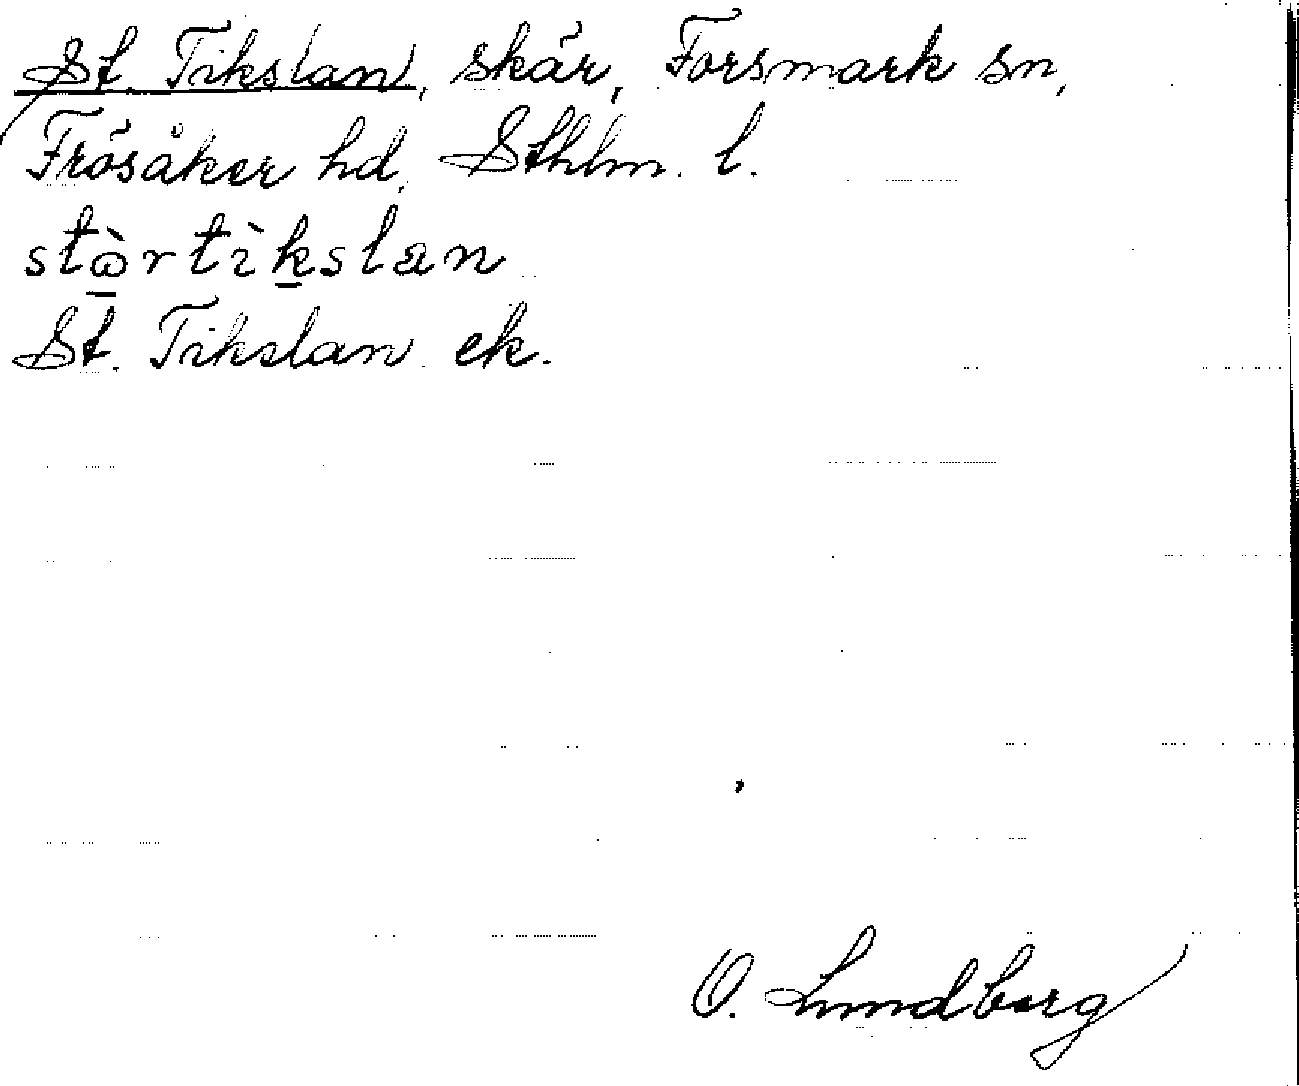 St. Tikslan, skär, Forsmark sn,
Frösåker hd, Sthlm. l.
stɷ̀rtìkslan
St. Tikslan ek.
O. Lundberg